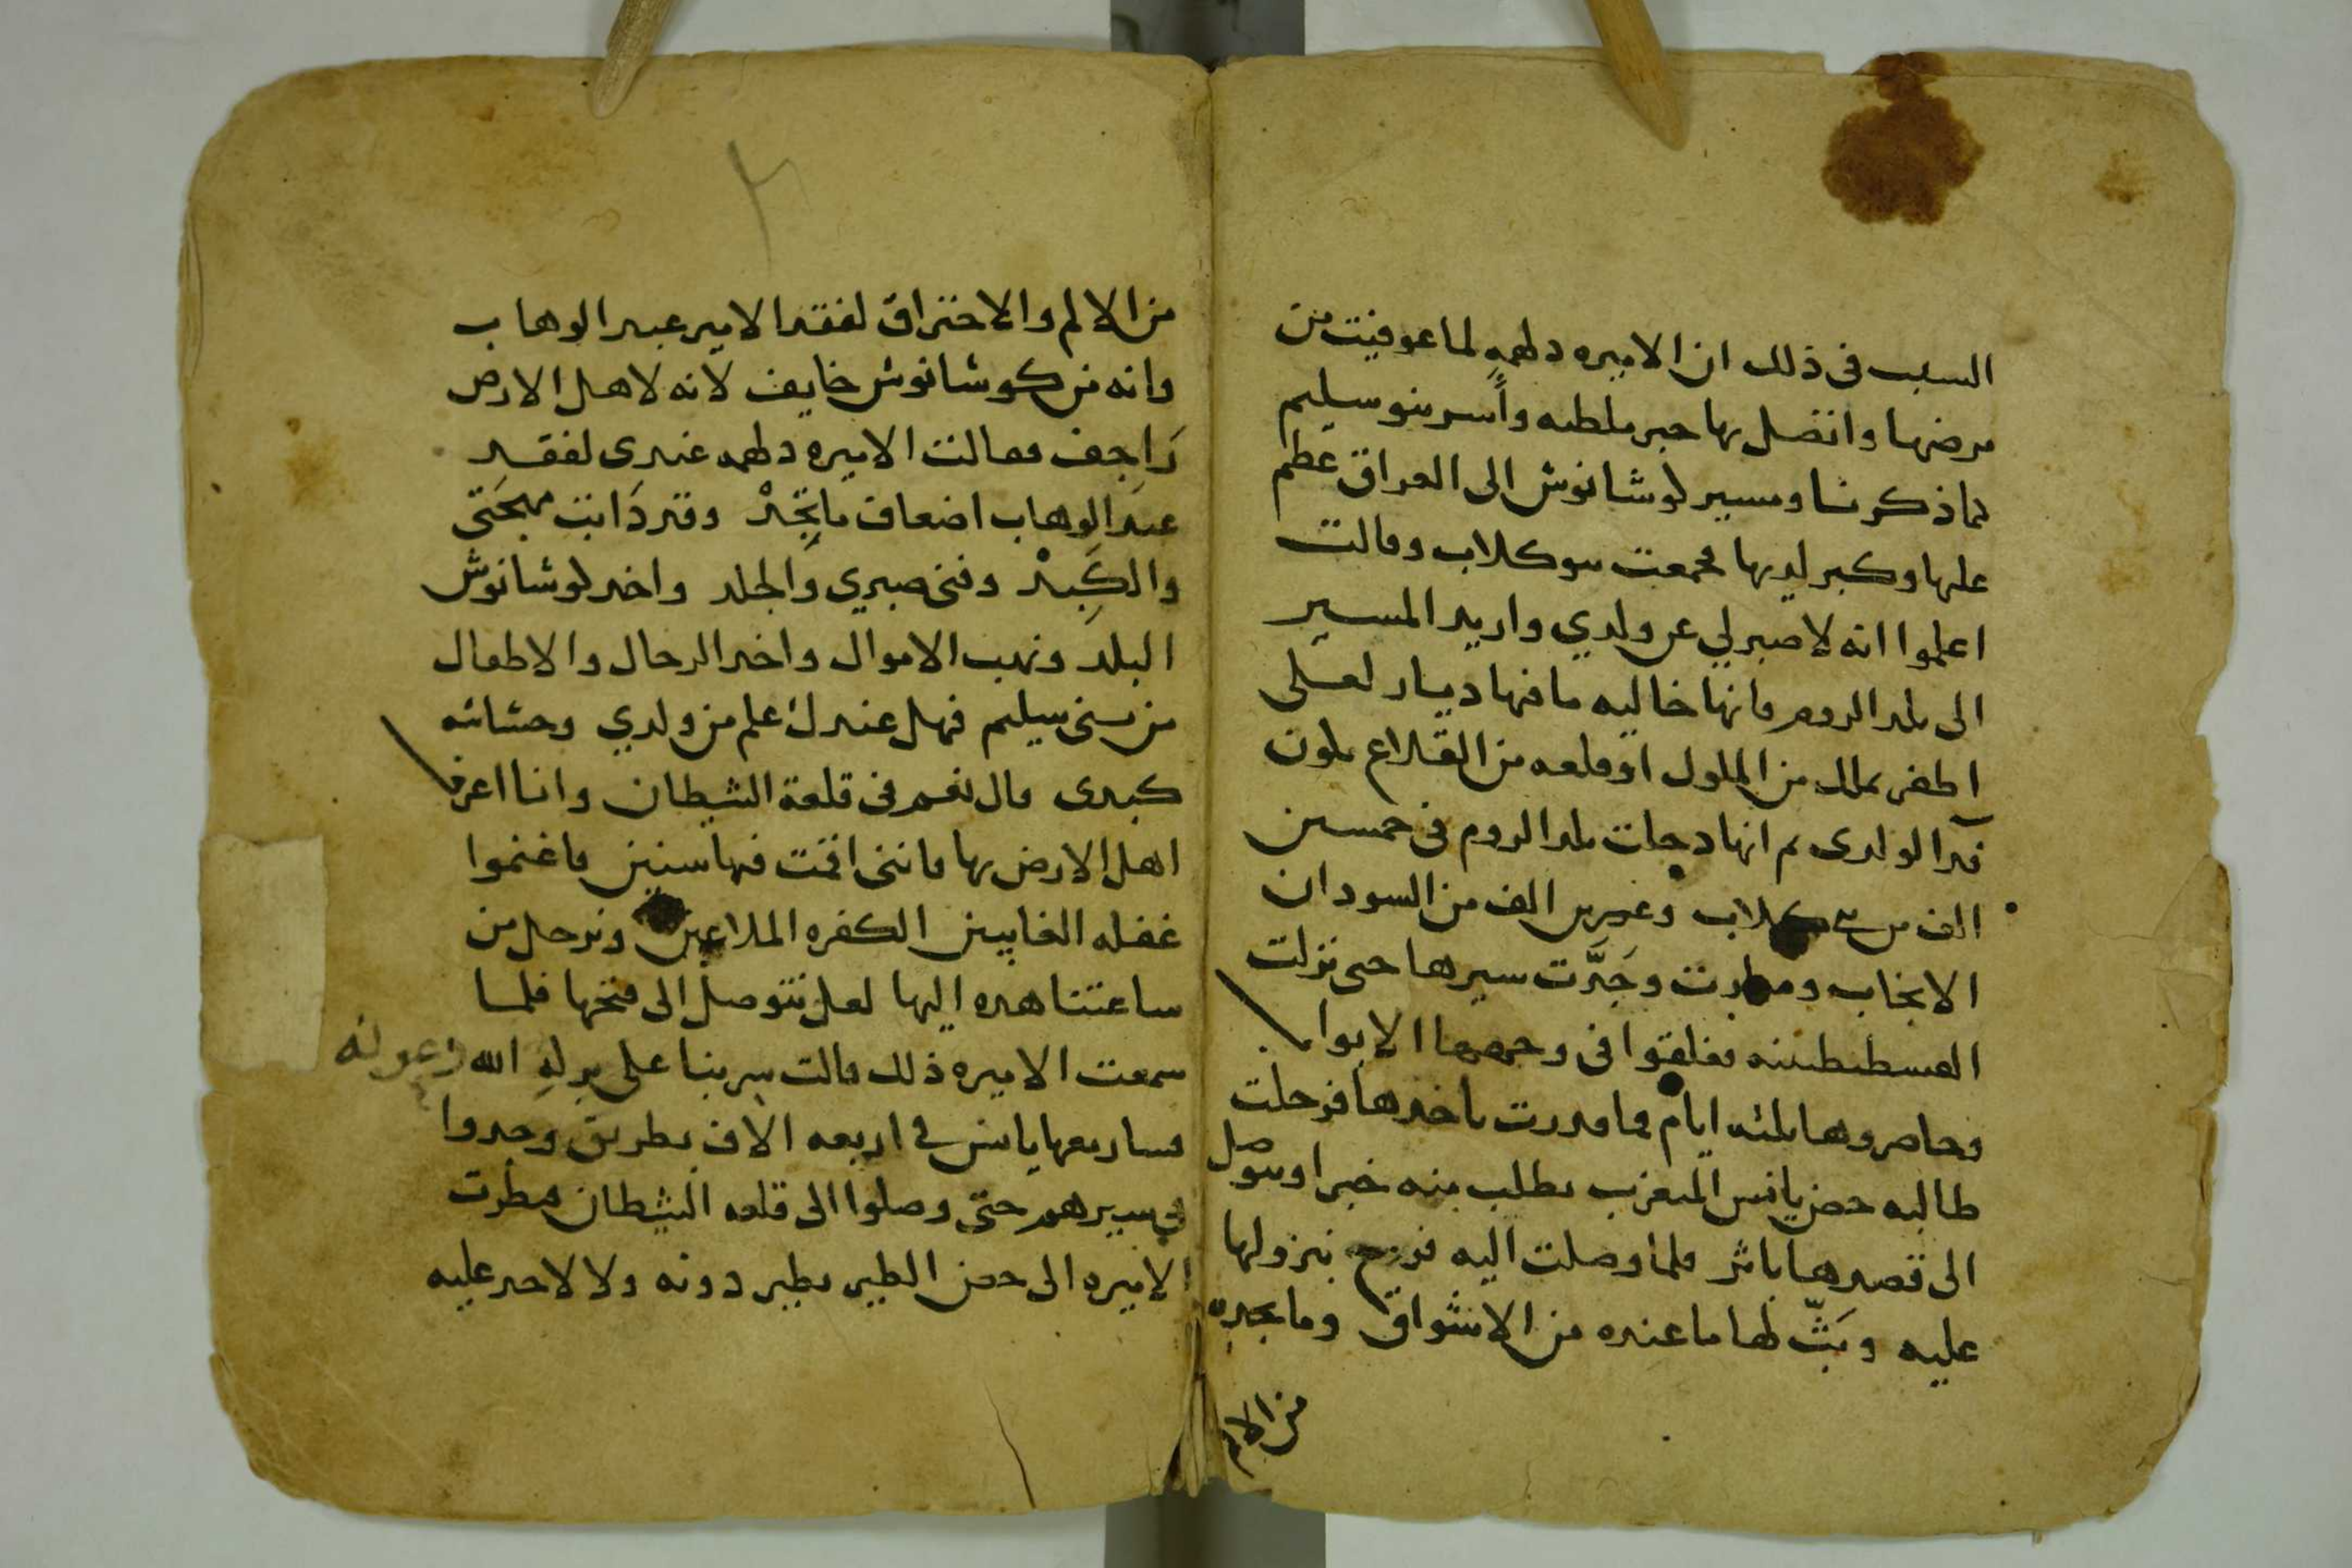 السبب فى ذلك ان الاميره دلهمه لما عوفيت من
مرضها واتصل بها خبر ملطيه وأسر بنو سليم
كما ذكرنا ومسير لوشانوش الى العراق عظم
عليها وكبر لديها فجمعت بنو كلاب وقالت
اعلموا انه لا صبر لي عن ولدي واريد المسير
الى بلد الروم فانها خاليه ما فيها ديار لعلى
اظفر بملك من الملوك او قلعه من القلاع يكون
فدا لولدى ثم انها دخلت بلد الروم فى خمسين
الف من بنى كلاب وعشرين الف من السودان
الانجاب وجَدَّت سيرها حتى نزلت
القسطنطينيه فغلقوا فى وجهها الابواب
وحاصروها ثلثه ايام فما قدرت تاخذها فرحلت
طالبه حصن يانس المتعرب تطلب منه خبرا وتتوصل
الى قصدها باثر فلما وصلت اليه فرح بنزولها
عليه وبَثّ لها ما عنده من الاشواق وما يجده
من الالم
من الالم والاحتراق لفقد الامير عبد الوهاب
وانه من كوشانوش خايف لانه لاهل الارض
رَاجف فقالت الاميره دلهمه عندى لفقد
عبد الوهاب اضعاف ما تَجِدْ وقد ذابت مهجَتى
والكَبِدْ وفنى صبري والجلد واخذ لوشانوش
البلد ونهب الاموال واخذ الرجال والاطفال
من بنى سليم فهل عندك علم من ولدي وحشاشه
كبدى قال نعم فى قلعة الشيطان وانا اعرف
اهل الارض بها فاننى اقمت فيها سنين فاغنموا
غفله الغايبين الكفره الملاعين ونرحل من
ساعتنا هذه اليها لعل نتوصل الى فتحها فلما
سمعت الاميره ذلك قالت سِر بنا على بركه الله وعونه
فسار معها يانس فى اربعه الاف بطريق وجدوا
في سيرهم حتى وصلوا الى قلعه الشيطان فنظرت
الاميره الى حصن الطير يطير دونه ولا لاحد عليه